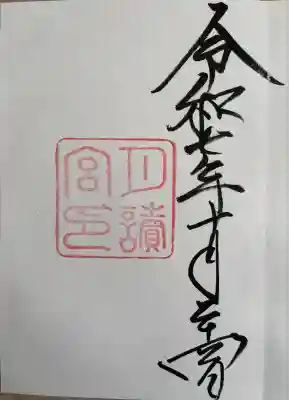 令和七年十月
月讀宮印